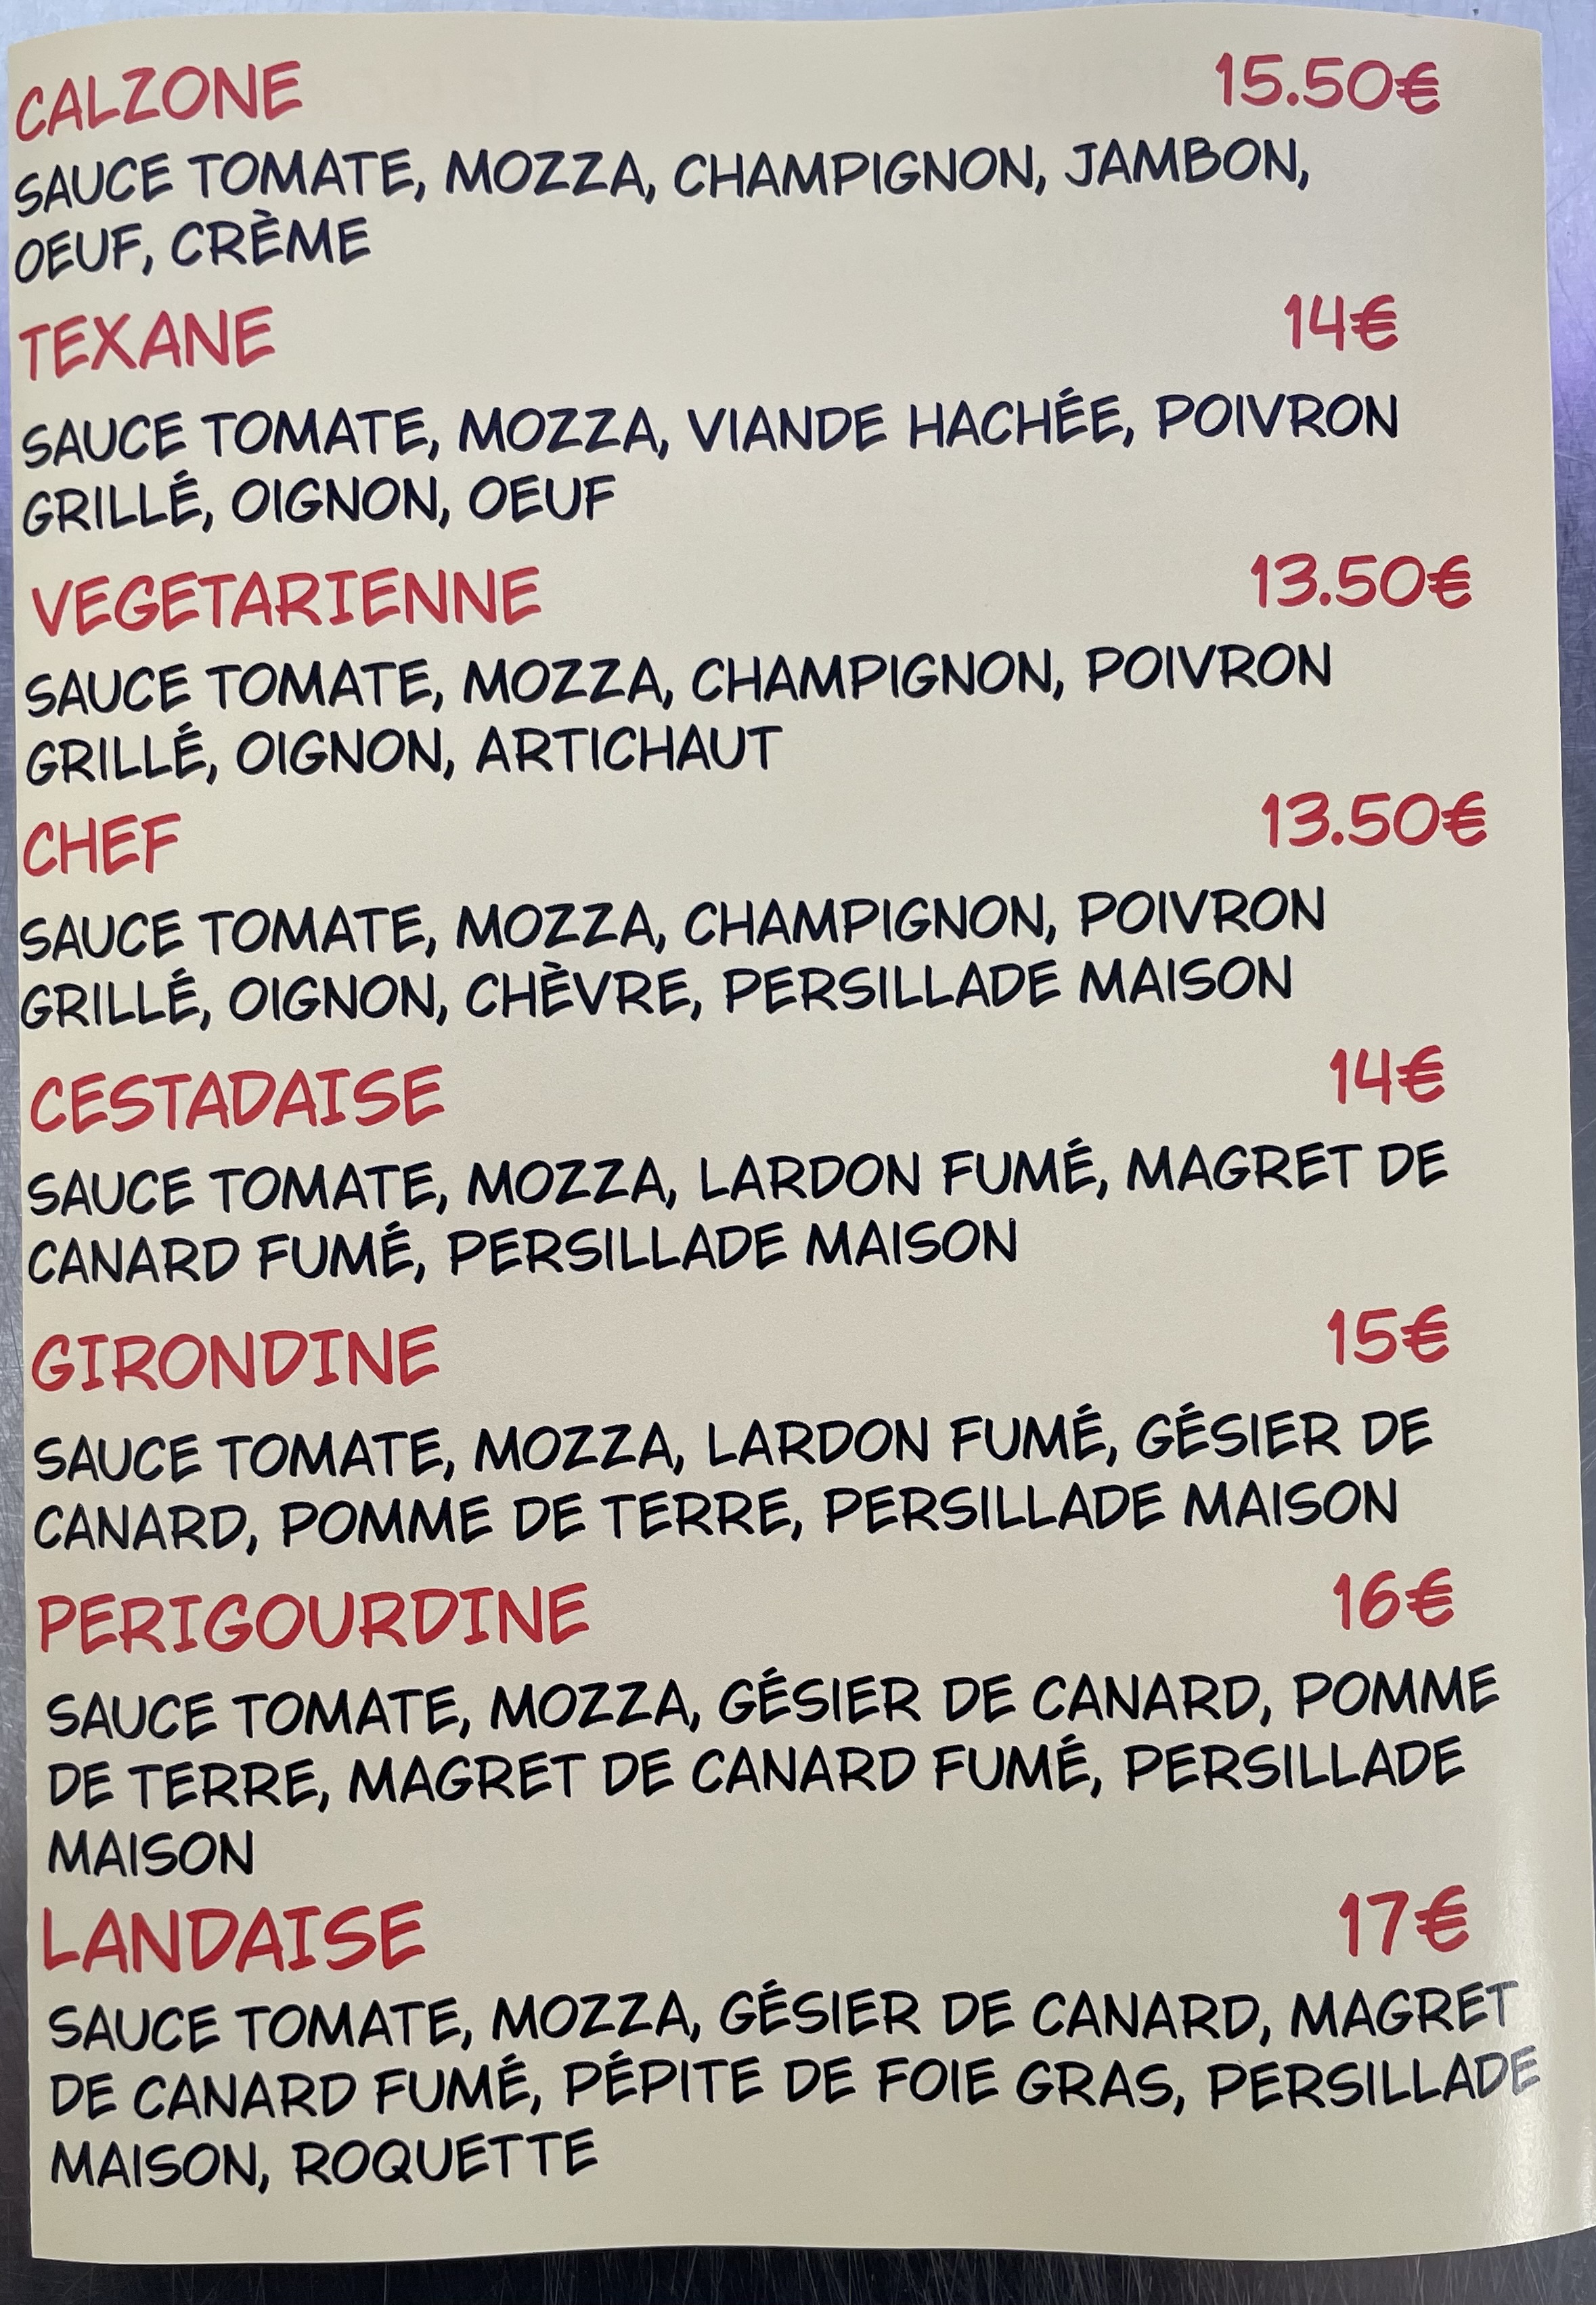 CALZONE 15.50€
SAUCE TOMATE, MOZZA, CHAMPIGNON, JAMBON,
OEUF, CRÈME
TEXANE 14€
SAUCE TOMATE, MOZZA, VIANDE HACHÉE, POIVRON
GRILLÉ, OIGNON, OEUF
VEGETARIENNE 13.50€
SAUCE TOMATE, MOZZA, CHAMPIGNON, POIVRON
GRILLÉ, OIGNON, ARTICHAUT
CHEF 13.50€
SAUCE TOMATE, MOZZA, CHAMPIGNON, POIVRON
GRILLÉ, OIGNON, CHÈVRE, PERSILLADE MAISON
CESTADAISE 14€
SAUCE TOMATE, MOZZA, LARDON FUMÉ, MAGRET DE
CANARD FUMÉ, PERSILLADE MAISON
GIRONDINE 15€
SAUCE TOMATE, MOZZA, LARDON FUMÉ, GÉSIER DE
CANARD, POMME DE TERRE, PERSILLADE MAISON
PERIGOURDINE 16€
SAUCE TOMATE, MOZZA, GÉSIER DE CANARD, POMME
DE TERRE, MAGRET DE CANARD FUMÉ, PERSILLADE
MAISON
LANDAISE 17€
SAUCE TOMATE, MOZZA, GÉSIER DE CANARD, MAGRET
DE CANARD FUMÉ, PÉPITE DE FOIE GRAS, PERSILLADE
MAISON, ROQUETTE